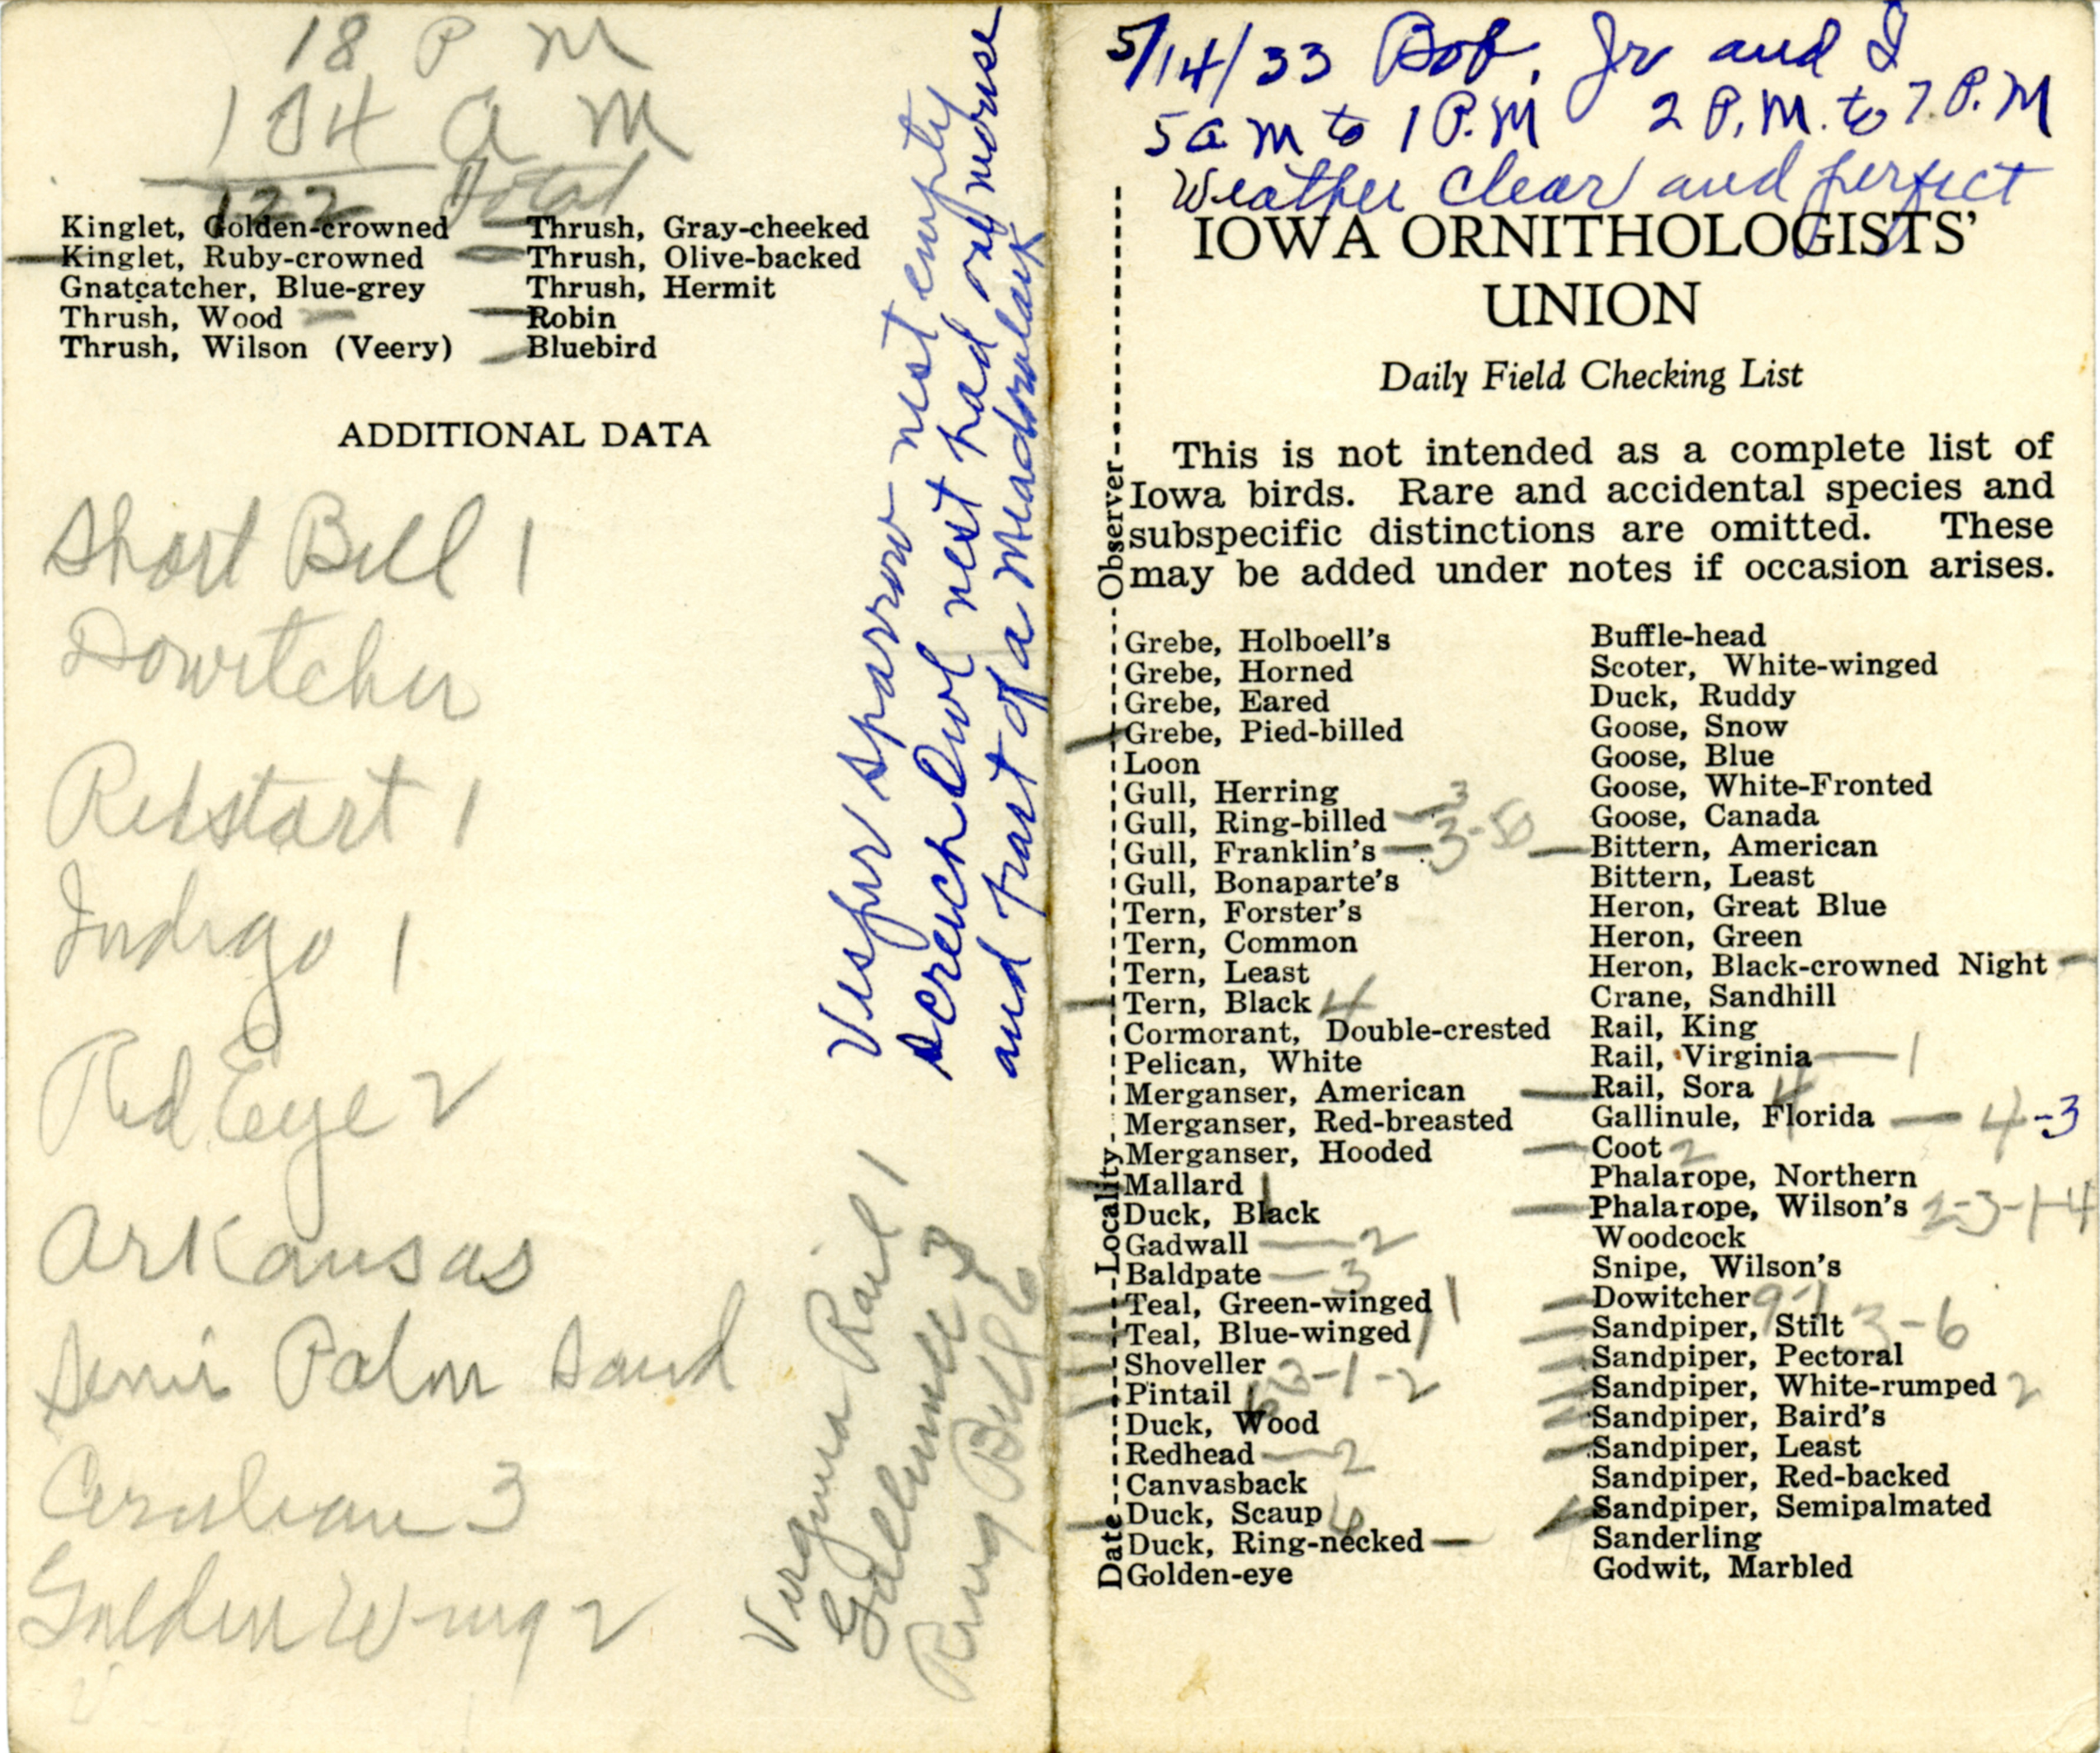 18 P M
104 a M
122 Total
Kinglet, Golden-crowned
Kinglet, Ruby-crowned
Gnatcatcher, Blue-grey
Thrush, Wood
Thrush, Wilson (Veery)
Thrush, Gray-cheeked
Thrush, Olive-backed
Thrush, Hermit
Robin
Bluebird
ADDITIONAL DATA
Short Bill 1
Dowitcher
Redstart 1
Indigo 1
Red Eye 2
Arkansas
Semi Palm Sand
Cerulean 3
Golden Wing 2
Vesper sparrow nest empty
screech Owl nest had only mouse
and part of a Meadowlark
Virginia Rail 1
Gallinule 3
Ring Bill 6
5/14/33 Bob, Jr and I
5 a m to 1 P.M 2 P.M. to 7 P.M
Weather clear and perfect
IOWA ORNITHOLOGISTS'
UNION
Daily Field Checking List
This is not intended as a complete list of
Iowa birds. Rare and accidental species and
subspecific distinctions are omitted. These
may be added under notes if occasion arises.
Date Locality Observer
Grebe, Holboell's
Grebe, Horned
Grebe, Eared
Grebe, Pied-billed
Loon
Gull, Herring
Gull, Ring-billed — 3
Gull, Franklin's — 3-50
Gull, Bonaparte's
Tern, Forster's
Tern, Common
Tern, Least
Tern, Black 4
Cormorant, Double-crested
Pelican, White
Merganser, American
Merganser, Red-breasted
Merganser, Hooded
Mallard 1
Duck, Black
Gadwall — 2
Baldpate — 3
Teal, Green-winged 1
Teal, Blue-winged 1
Shoveller 3-1-2
Pintail
Duck, Wood
Redhead — 2
Canvasback
Duck, Scaup 6
Duck, Ring-necked —
Golden-eye
Buffle-head
Scoter, White-winged
Duck, Ruddy
Goose, Snow
Goose, Blue
Goose, White-Fronted
Goose, Canada
Bittern, American
Bittern, Least
Heron, Great Blue
Heron, Green
Heron, Black-crowned Night —
Crane, Sandhill
Rail, King
Rail, Virginia — 1
Rail, Sora 4
Gallinule, Florida — 4-3
Coot 2
Phalarope, Northern
Phalarope, Wilson's 2-3-1-4
Woodcock
Snipe, Wilson's
Dowitcher 9-1
Sandpiper, Stilt 3-6
Sandpiper, Pectoral
Sandpiper, White-rumped 2
Sandpiper, Baird's
Sandpiper, Least
Sandpiper, Red-backed
Sandpiper, Semipalmated
Sanderling
Godwit, Marbled